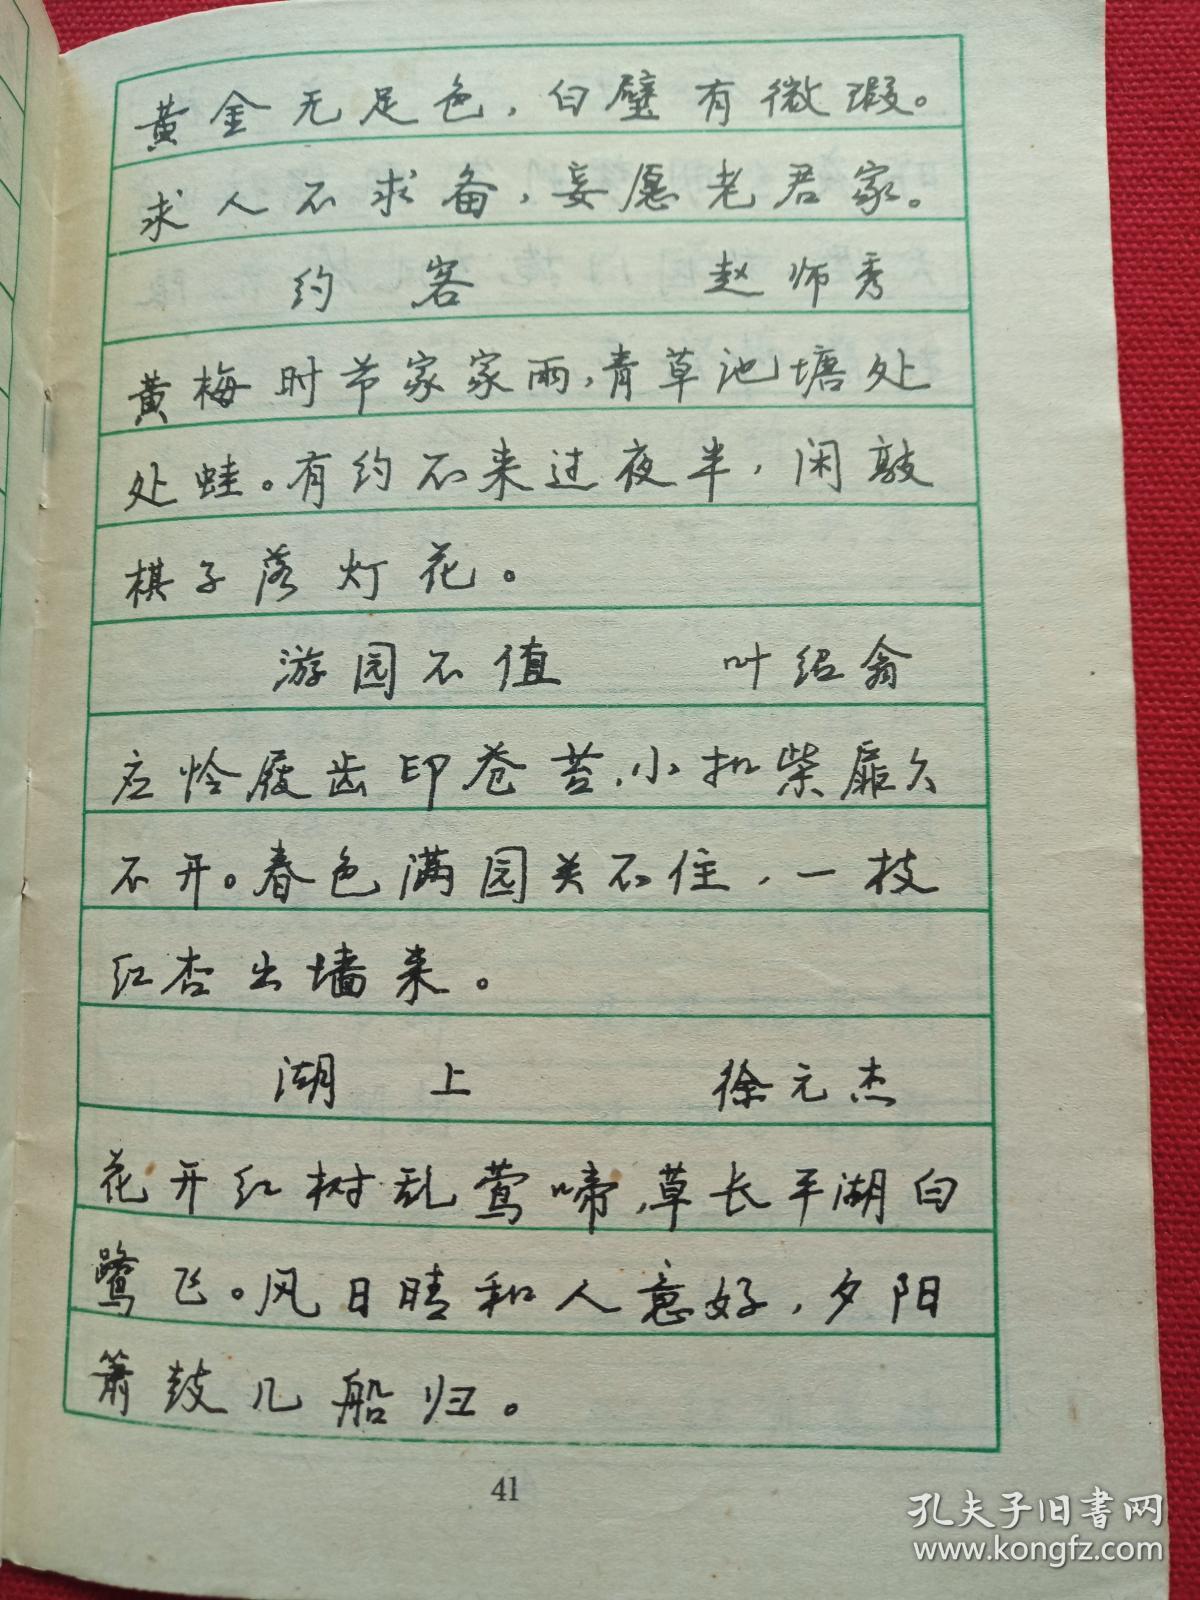 黄金无足色，白璧有微瑕。
求人不求备，妾愿老君家。
约客 赵师秀
黄梅时节家家雨，青草池塘处
处蛙。有约不来过夜半，闲敲
棋子落灯花。
游园不值 叶绍翁
应怜屐齿印苍苔，小扣柴扉久
不开。春色满园关不住，一枝
红杏出墙来。
湖上 徐元杰
花开红树乱莺啼，草长平湖白
鹭飞。风日晴和人意好，夕阳
箫鼓几船归。
41
孔夫子旧书网
www.kongfz.com